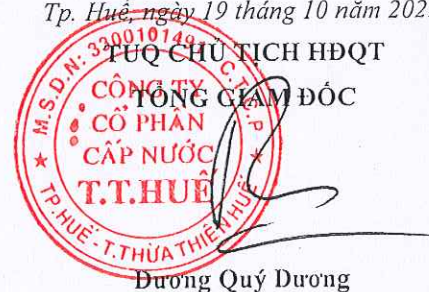 Tp. Huế, ngày 19 tháng 10 năm 202
TUQ CHỦ TỊCH HĐQT
TỔNG GIÁM ĐỐC
M.S.D.N: 33001014 C.T.C.P
CÔNG TY
CỔ PHẦN
CẤP NƯỚC
T.T.HUẾ
TP.HUẾ - T.THỪA THIÊN HUẾ
Dương Quý Dương